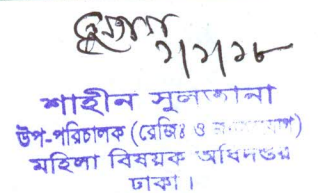 ১/১/১৮
শাহীন সুলতানা
উপ-পরিচালক (রেজিঃ ও
মহিলা বিষয়ক অধিদপ্তর
ঢাকা।